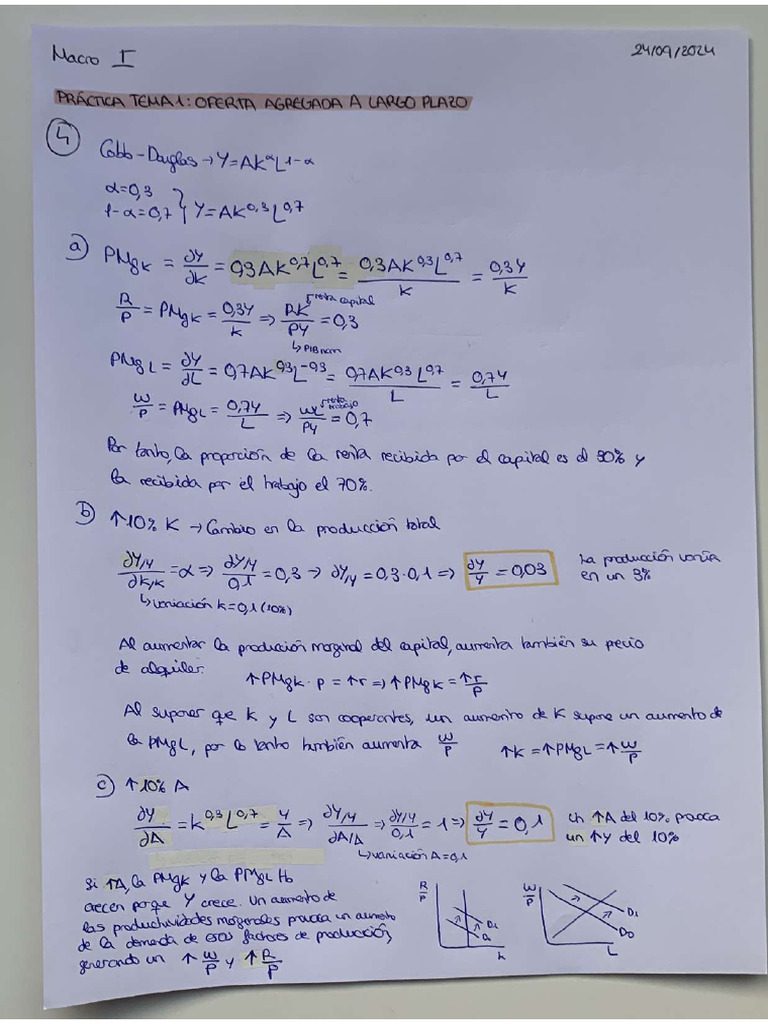 Macro I
24/09/2024
PRÁCTICA TEMA 1: OFERTA AGREGADA A LARGO PLAZO
4
Cobb-Douglas → Y=AK^αL^1-α
α=0,3
1-α=0,7 } Y=AK^0,3L^0,7
a) PMgK = ∂Y/∂K = 0,3AK^0,7L^0,7 = 0,3AK^0,3L^0,7/K = 0,3Y/K
R/P = PMgK = 0,3Y/K ⇒ RK/PY = 0,3
↱ renta capital
↳ PIB nom
PMgL = ∂Y/∂L = 0,7AK^0,3L^-0,3 = 0,7AK^0,3L^0,7/L = 0,7Y/L
W/P = PMgL = 0,7Y/L ⇒ WL/PY = 0,7
↱ renta trabajo
Por tanto, la proporción de la renta recibida por el capital es el 30% y
la recibida por el trabajo el 70%.
b) ↑10% K → Cambio en la producción total
∂Y/Y/∂K/K = α ⇒ ∂Y/Y/0,1 = 0,3 ⇒ ∂Y/Y = 0,3·0,1 ⇒ ∂Y/Y = 0,03
La producción varía
en un 3%
↳ variación K=0,1 (10%)
Al aumentar la producción marginal del capital, aumenta también su precio
de alquiler.
↑PMgK · P = ↑r ⇒ ↑PMgK = ↑r/P
Al suponer que K y L son cooperantes, un aumento de K supone un aumento de
la PMgL, por lo tanto también aumenta W/P
↑K = ↑PMgL = ↑W/P
c) ↑10% A
∂Y/∂A = K^0,3L^0,7 = Y/A ⇒ ∂Y/Y/∂A/A ⇒ ∂Y/Y/0,1 = 1 ⇒ ∂Y/Y = 0,1
Un ↑A del 10% provoca
un ↑Y del 10%
↳ variación A=0,1
Si ↑A, la PMgK y la PMgL
crecen porque Y crece. Un aumento de
las productividades marginales provoca un aumento
de la demanda de esos factores de producción,
generando un ↑ W/P y ↑ R/P
R/P
D₁
D₀
K
W/P
D₁
D₀
L